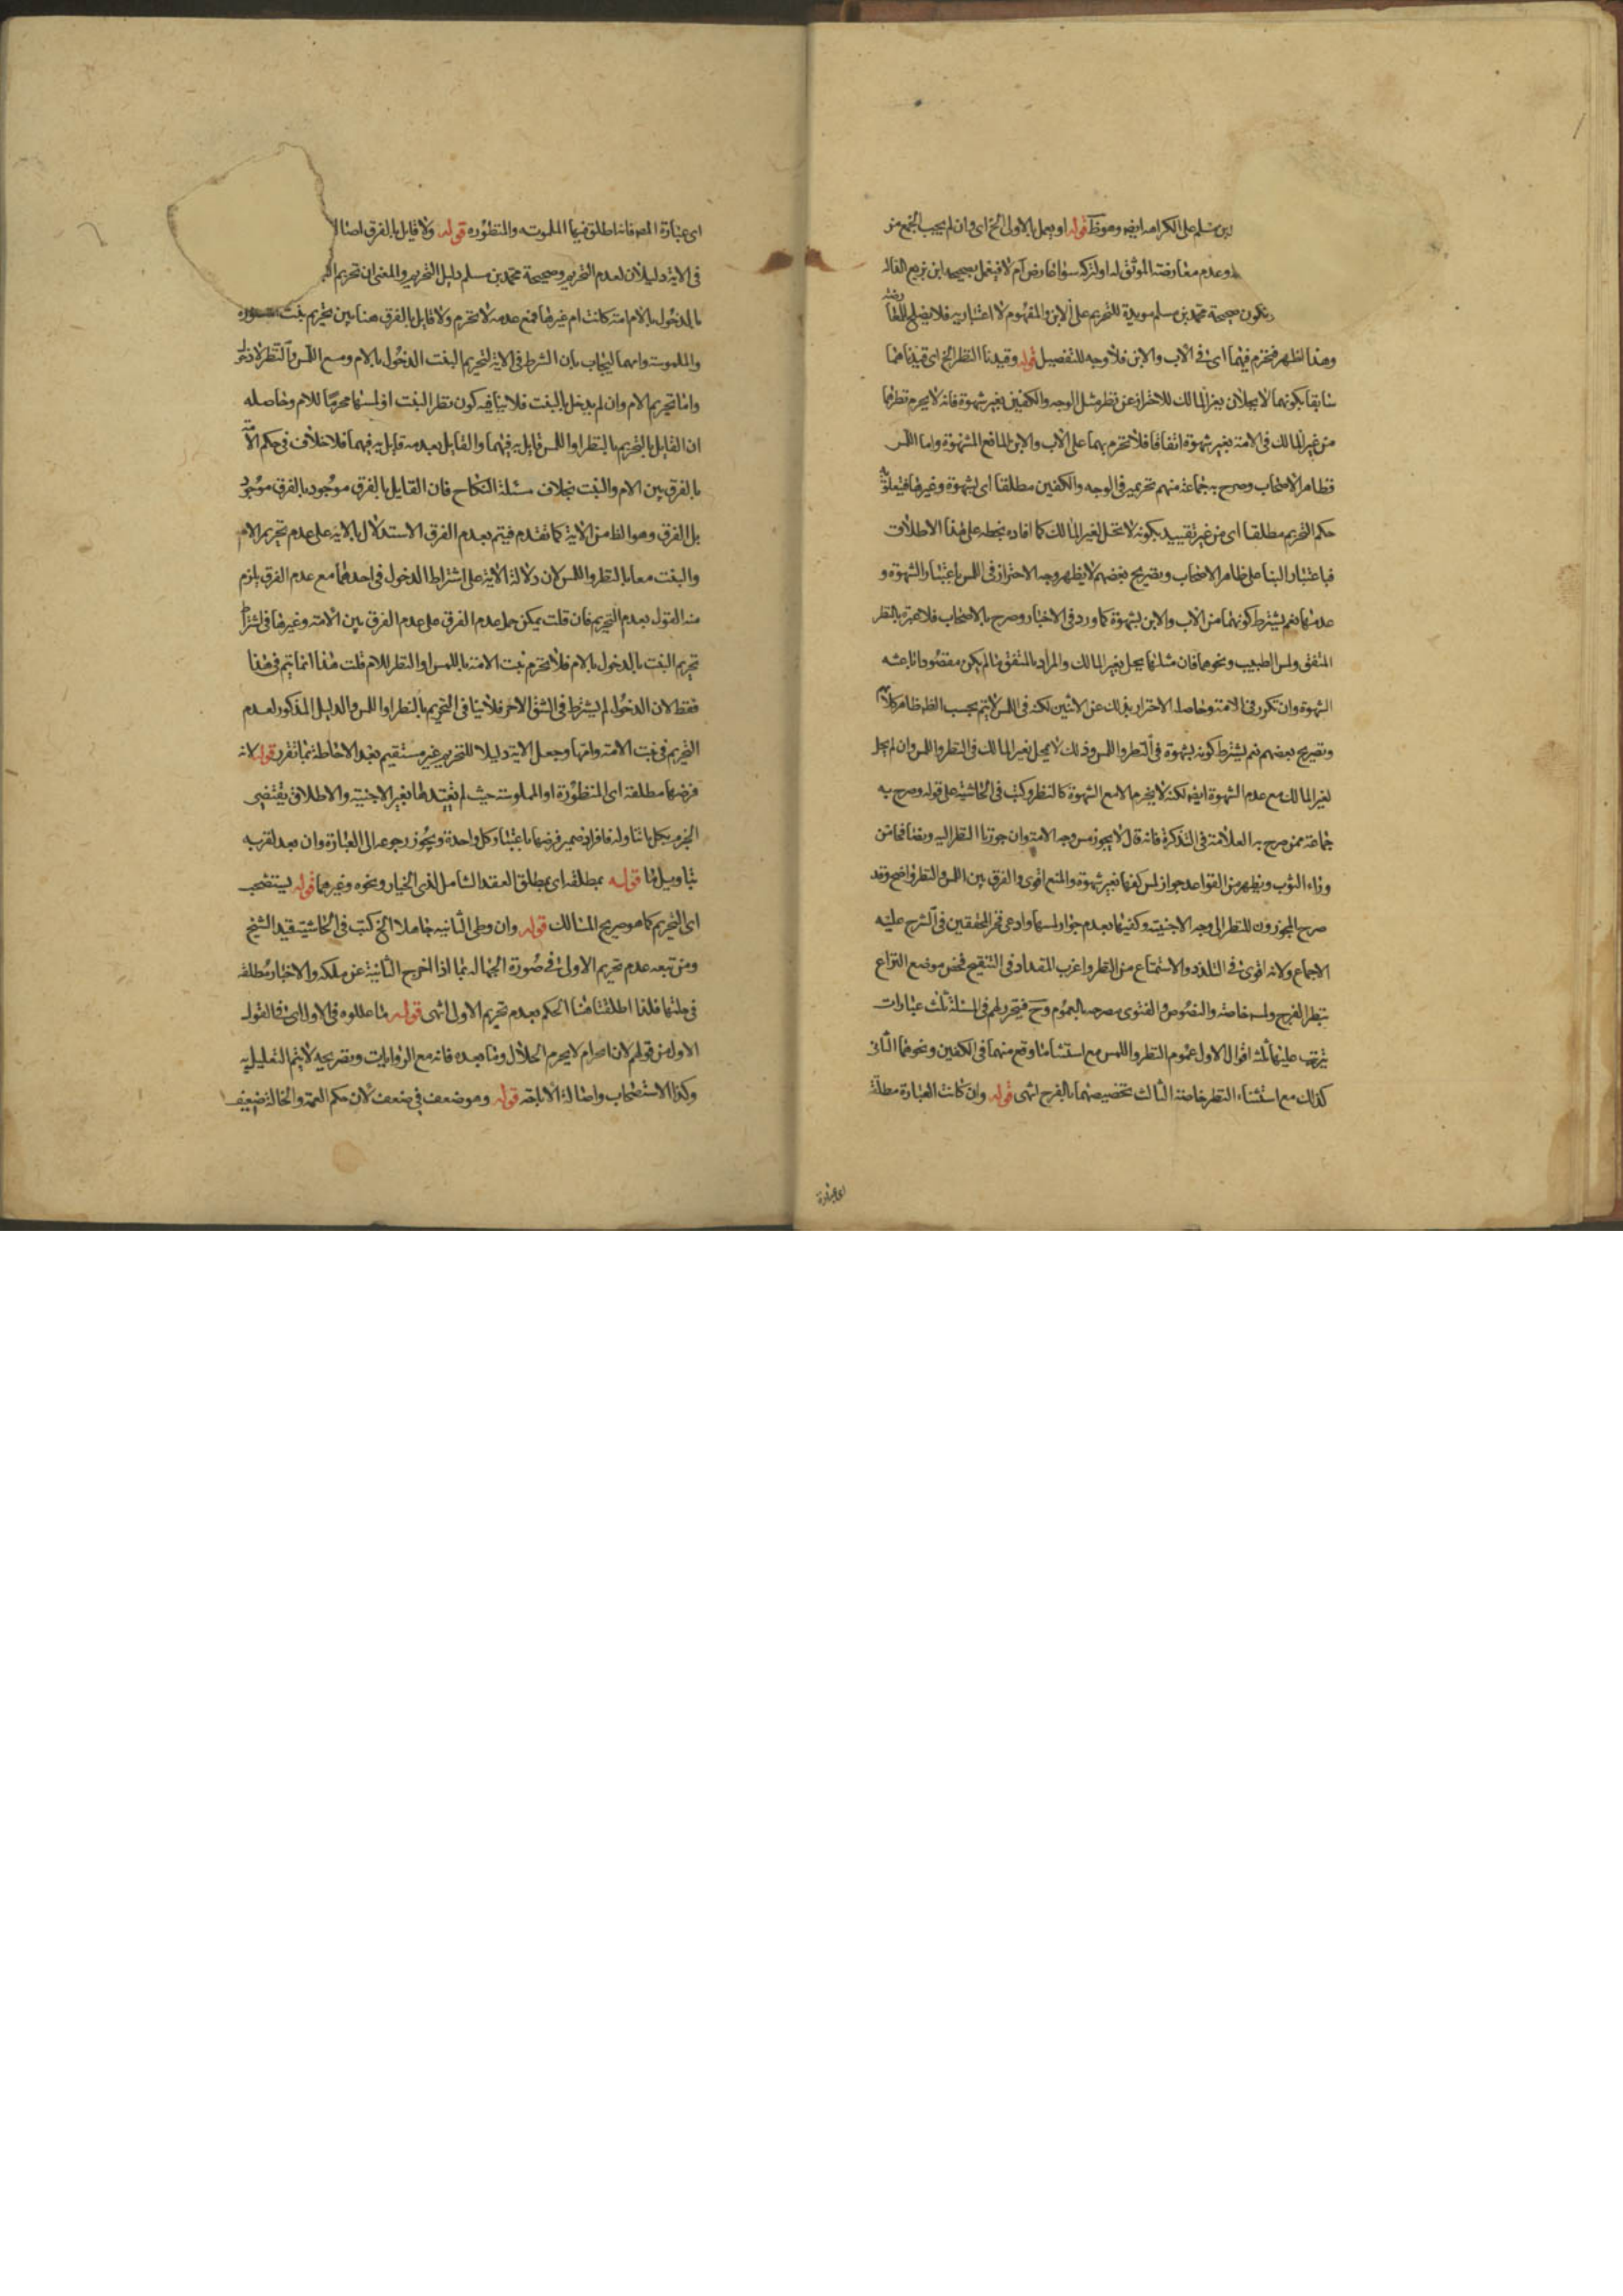 ابن مسلم على الكراهه ايضه وهو كَظ قوله او يعمل بالاولى الخ اى وان لم يجب الجمع من
وعدم معارضته الموثق له او لتركه سواء تعارض ام لا فيعمل بصحيحه ابن بزيع الداله
وتكون صحيحة محمد بن مسلم مويدة للتحريم على الابن والمفهوم لا اعتبار به فلا يصلح للمعا رضته
وهذا اظهر فتحرم فيهما اى فى الاب والابن فلا وجه للتفصيل قوله وقيدنا النظر الخ اى قيدناهما
سابقا بكونهما لا يحلان بغير المالك للاحتراز عن نظر مثل الوجه والكفين بغير شهوة فانه لا يحرم نظرهما
من غير المالك فى الامة بغير شهوة اتفاقا فلا تحرم بهما على الاب والابن المانع المشهوة واما اللمس
فظاهر الاصحاب وصرح به جماعة منهم تحريمه فى الوجه والكفين مطلقا اى بشهوة وغيرها فيتعلق به
حكم التحريم مطلقا اى من غير تقييد بكونه لا تحل لغير المالك كما افاده بخطه على هذا الاطلاق
فباعتبار البنا على ظاهر الاصحاب وبصريح بعضهم لا يظهر وجه الاحتراز فى اللمس باعتبار الشهوة و
عدمها نعم يشترط كونهما من الاب والابن بشهوة كما ورد فى الاخبار وصرح به الاصحاب فلا عبرة بالنظر
المتفق ولمس الطبيب ونحوهما فان مثلهما يحل بغير المالك والمراد بالمتفق ما لم يكن مقصودا باعثه
الشهوة وان تكرر فى الامة وحاصله الاحتراز بذلك عن الاثنين لكنه فى اللمس لا يتم بحسب الظ ظاهر كلامهم
وبصريح بعضهم نعم يشترط كونه بشهوة فى النظر واللمس وذلك لا يحل بغير المالك فى النظر واللمس وان لم يحل
لغير المالك مع عدم الشهوة ايضه لكنه لا يحرم الا مع الشهوة كالنظر وكتب فى الحاشية على قوله وصرح به
جماعة ممن صرح به العلامة فى التذكرة فانه قال لا يجوز مس وجه الامة وان جوزنا النظر اليه وبعنا فحا من
وراء الثوب ويظهر من القواعد جواز لمس كفها بغير شهوة والمنع اقوى والفرق بين اللمس والنظر واضح وقد
صرح المجوزون للنظر الى وجه الاجنبية وكفيها بعدم جواز لمسها وادعى فخر المحققين فى الشرح عليه
الاجماع ولانه اقوى فى التلذذ والاستمتاع من النظر واغرب المقداد فى التنقيح فخص موضع النزاع
بنظر الفرج ولمسه خاصة والنصوص والفتوى مصرحه بالعموم وح فيتحرر لهم فى المسئلة ثلث عبارات
يترتب عليها ثلثه اقوال الاول عموم النظر واللمس مع استثنا ما وقع منهما فى الكفين ونحوهما الثانى
كذلك مع استثناء النظر خاصة الثالث تخصيصهما بالفرج انتهى قوله وان كانت العبارة مطلقة
اى عبارة
اى عبارة المصه فانه اطلق فيها الملموسه والمنظوره قوله ولا قايل بالفرق اصلا لا
فى الاية دليلان لعدم التحريم وصحيحة محمد بن مسلم دليل التحريم والمعنى ان تحريم
بالمدخول بالام امة كانت ام غيرها فمع عدمه لا تحرم ولا قايل بالفرق هنا بين تحريم بنت المنظوره
والملموسة وامهما ليجاب بان الشرط فى الاية لتحريم البنت الدخول بالام ومع اللمس والنظر لا دخول
واما تحريم الام وان لم يدخل بالبنت فلا ينافيه كون نظر البنت او لمسها محرما للام وحاصله
ان القايل بالتحريم بالنظر او اللمس قايل به فيهما والقايل بعدمه قايل به فيهما فلا خلاف فى حكم الامة
بالفرق بين الام والبنت بخلاف مسئلة النكاح فان القايل بالفرق موجود بالفرق موجود
بل الفرق وهو الظ من الاية كما تقدم فيتم بعدم الفرق الاستدلال بالاية على عدم تحريم الام
والبنت معا بالنظر واللمس لان دلالة الاية على اشتراط الدخول فى احدهما مع عدم الفرق يلزم
منه القول بعدم التحريم فان قلت يمكن حمل عدم الفرق على عدم الفرق بين الامة وغيرها فى اشتراط
تحريم البنت بالدخول بالام فلا تحرم بنت الامة باللمس او النظر للام قلت هذا انما يتم فى هذا
فقط لان الدخول لم يشترط فى الشق الاخر فلا ينافى التحريم بالنظر او اللمس والدليل المذكور لعدم
التحريم فى بنت الامة وامها وجعل الاية دليلا للتحريم غير مستقيم بعد الاحاطة بما تقرر قوله لانه
فرضها مطلقة اى المنظورة او الملموسة حيث لم يقيدها بغير الاجنبية والاطلاق يقتضى
الجزم بكل ما تناوله فافراد ضمير فرضها باعتبار كل واحدة ويجوز رجوعه الى العبارة وان بعد لقربه
بتاويل ما قوله بمطلقه اى بمطلق العقد الشامل لذى الخيار ونحوه وغيرهما قوله يستصحب
اى التحريم كما هو صريح المسالك قوله وان وطى الثانية جاهلا الخ كتب فى الحاشية قيد الشيخ
ومن تبعه عدم تحريم الاولى فى صورة الجهالة بما اذا اخرج الثانية عن ملكه والاخبار مطلقه
فى حلتها فلذا اطلقنا هنا الحكم بعدم تحريم الاولى انتهى قوله ما عللوه فى الاول اى فى القول
الاول من قولهم لان الحرام لا يحرم الحلال وما بعده فانه مع الروايات وبصريحه لا يتم التعليل به
وكذا الاستصحاب واصالة الاباحة قوله وهو ضعف فى ضعف لان حكم العمة والخالة ضعيف